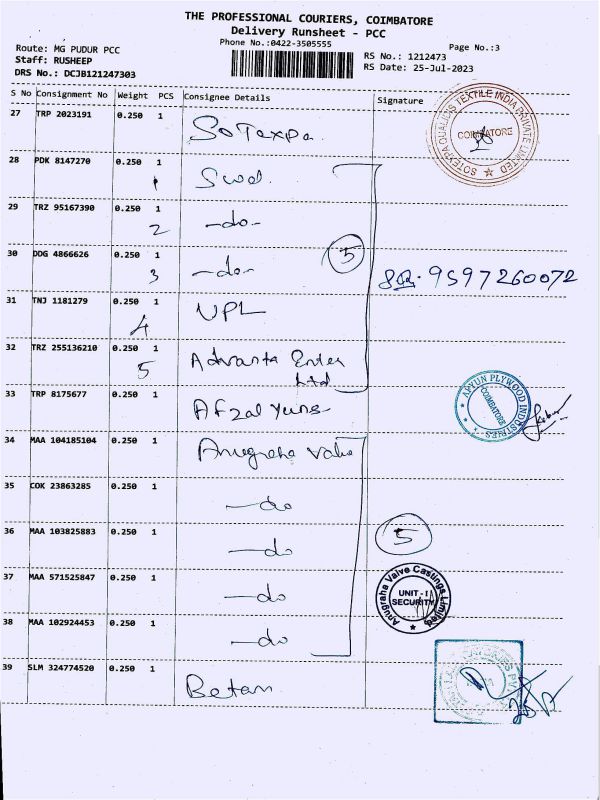 THE PROFESSIONAL COURIERS, COIMBATORE
Delivery Runsheet - PCC
Phone No.:0422-3505555
Page No.:3
Route: MG PUDUR PCC
Staff: RUSHEEP
DRS No.: DCJB121247303
RS No.: 1212473
RS Date: 25-Jul-2023
S No Consignment No Weight PCS Consignee Details Signature
27 TRP 2023191 0.250 1 SoTexpa
SOTEXPA QUALIDIS TEXTILE INDIA PRIVATE LIMITED
COIMBATORE
28 PDK 8147270 0.250 1
1
29 TRZ 95167390 0.250 1 -do-
2
5
30 DDG 4866626 0.250 1 -do-
3
9597260072
31 TNJ 1181279 0.250 1 UPL
4
32 TRZ 255136210 0.250 1 Advanta Enter
5
Ltd
33 TRP 8175677 0.250 1 Afzal Yuns
PLYWOOD INDUSTRIES
COIMBATORE
34 MAA 104185104 0.250 1 Anugraha Valve
35 COK 23863285 0.250 1 -do
36 MAA 103825883 0.250 1 -do
5
37 MAA 571525847 0.250 1 -do
Anugraha Valve Castings Limited
UNIT-I
SECURITY
38 MAA 102924453 0.250 1 -do
39 SLM 324774520 0.250 1 Betam